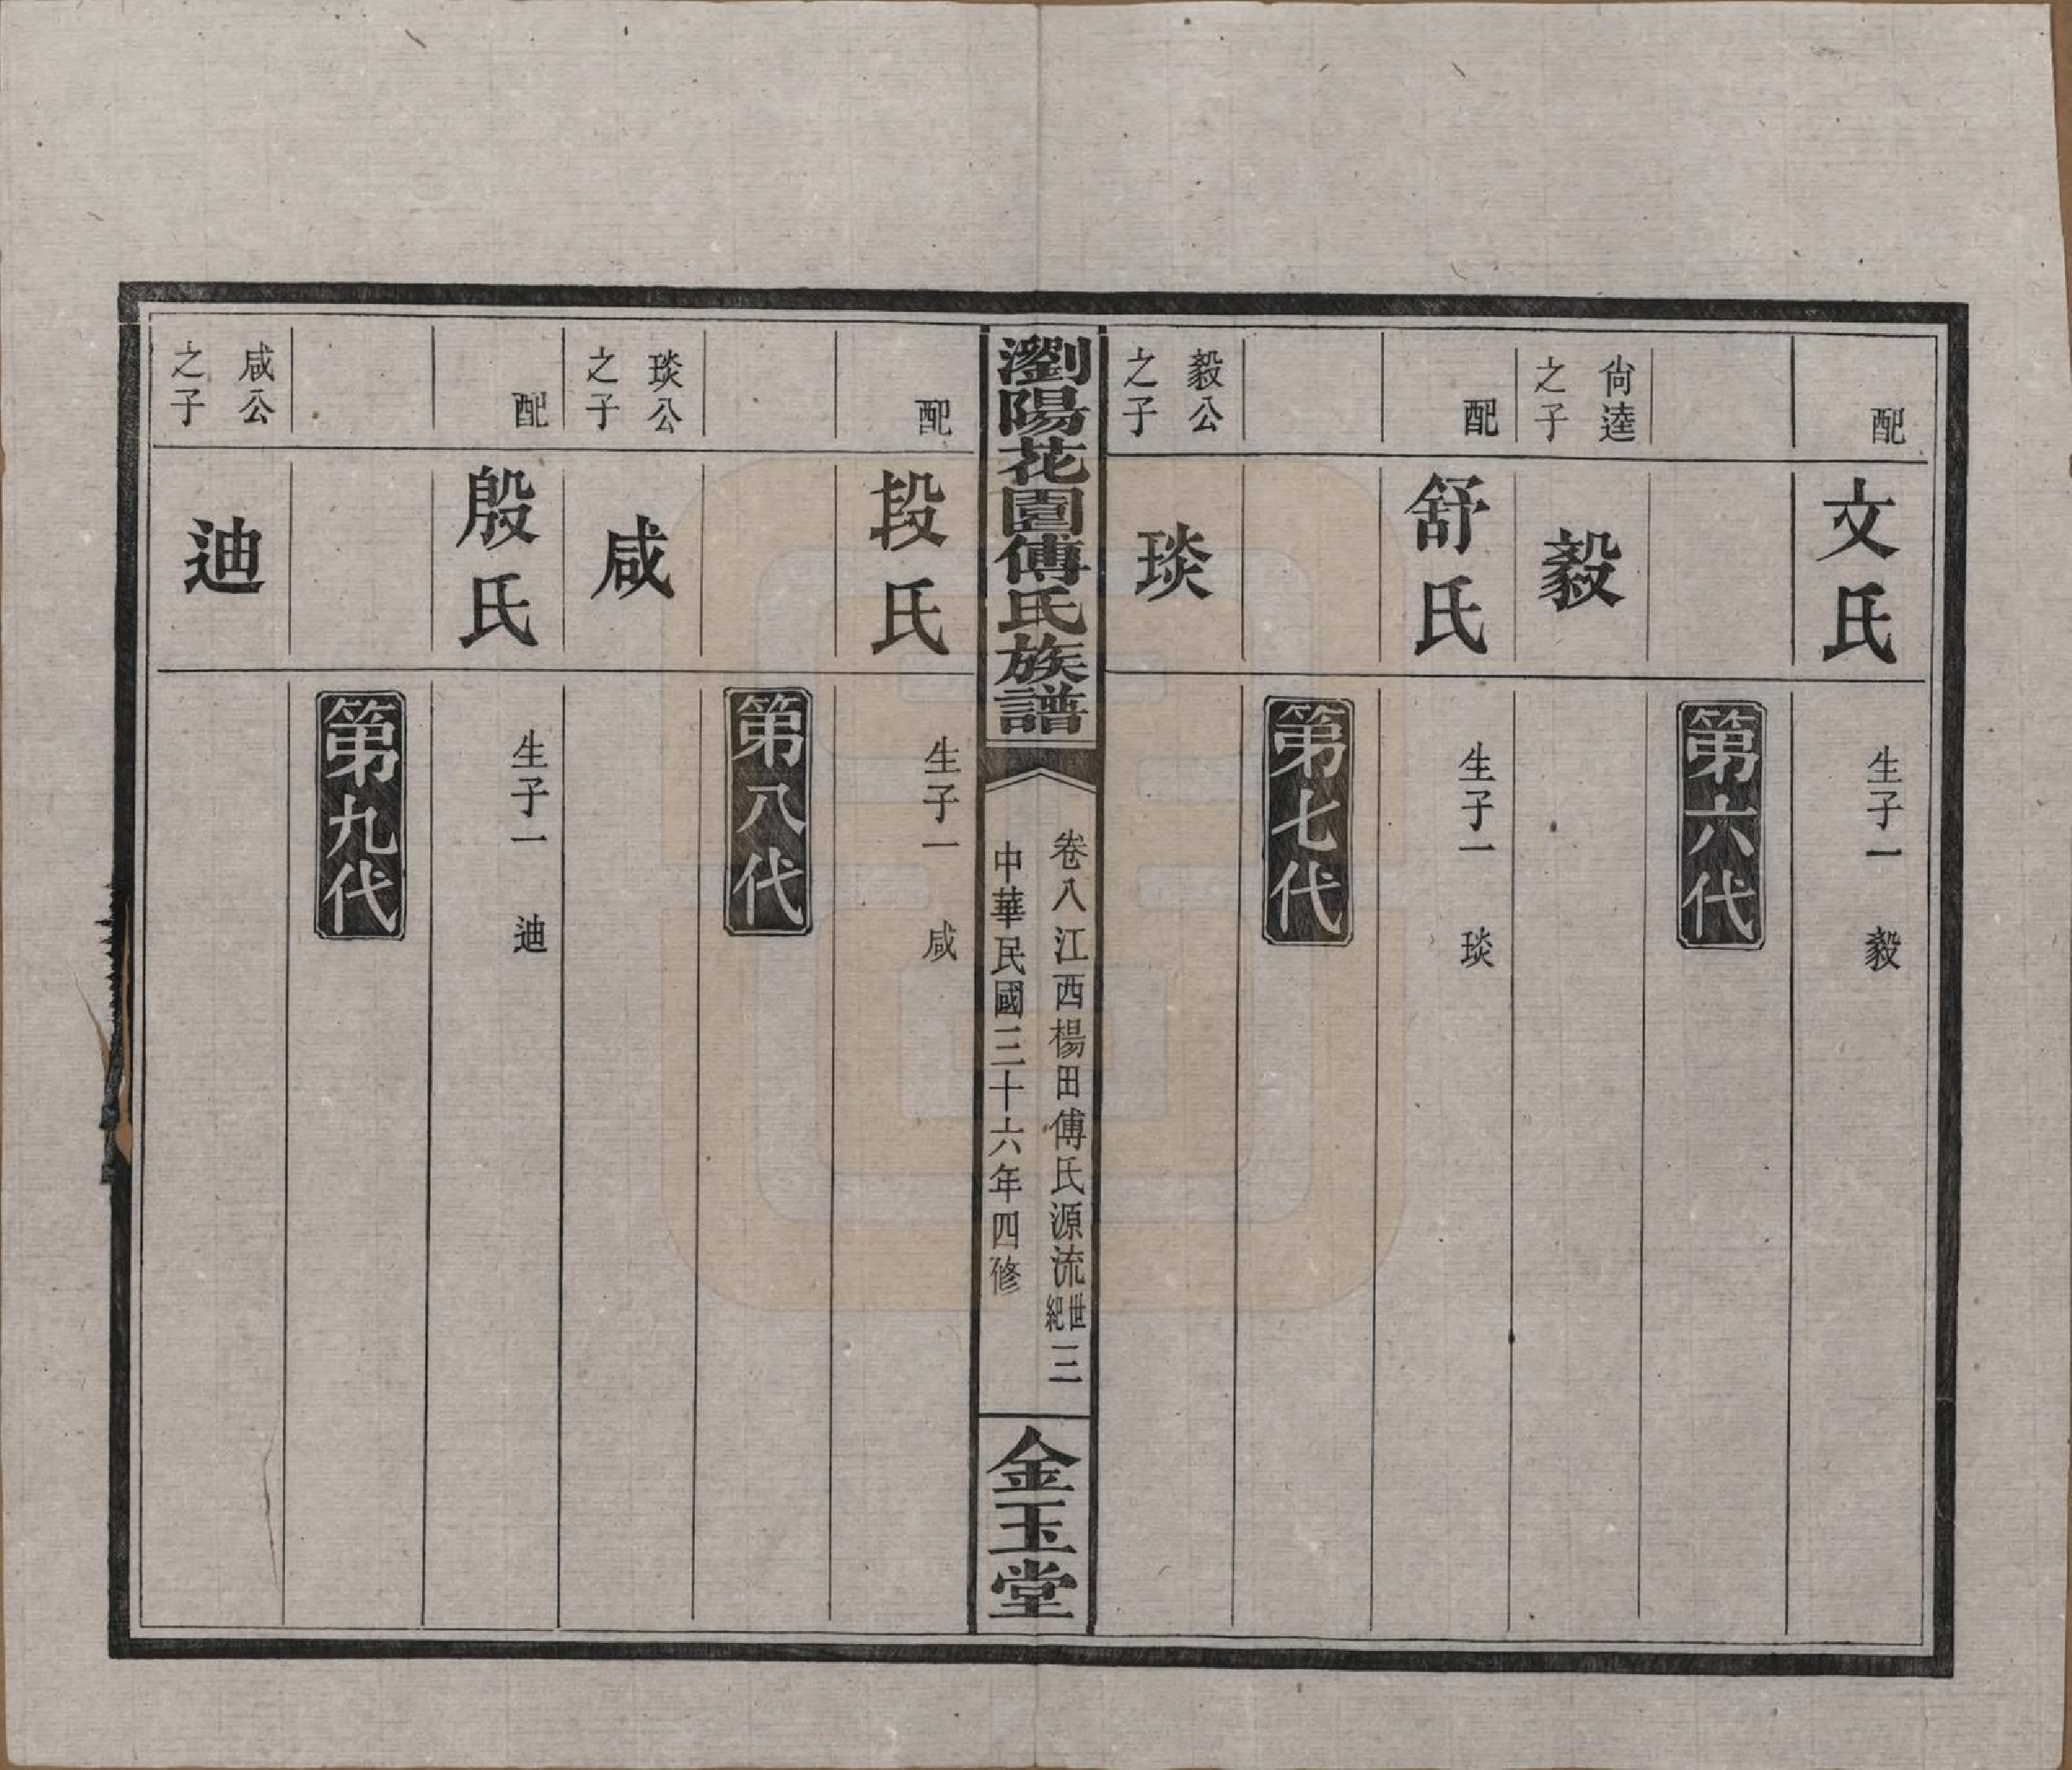 配 文氏 生子一 毅
第六代
尙逵之子 毅
配 舒氏 生子一 琰
第七代
毅公之子 琰
瀏陽花園傅氏族譜
卷八江西楊田傅氏源流世紀 三
中華民國三十六年四修
金玉堂
配 段氏 生子一 咸
第八代
琰公之子 咸
配 殷氏 生子一 迪
第九代
咸公之子 迪